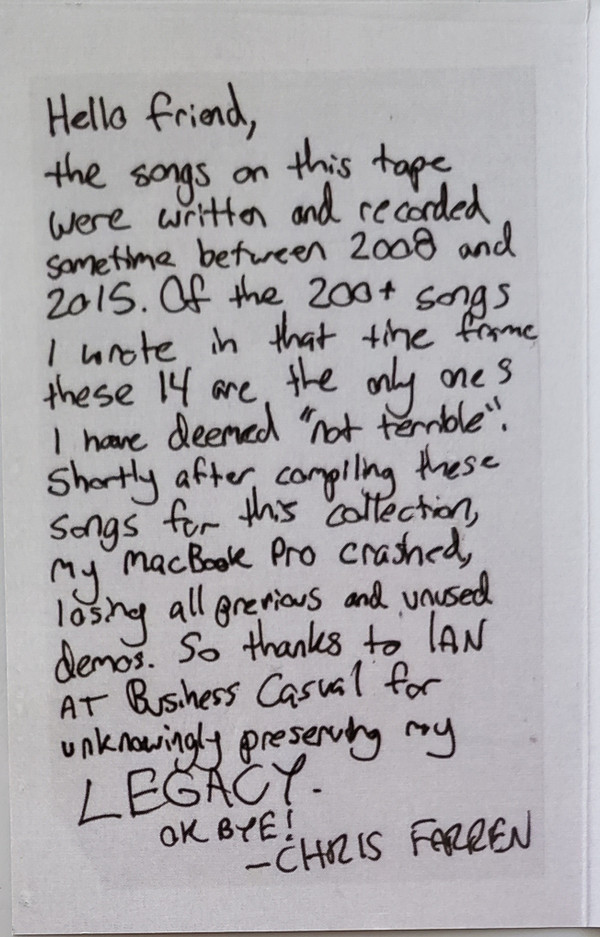 Hello friend,
the songs on this tape
were written and recorded
sometime between 2008 and
2015. Of the 200+ songs
I wrote in that time frame
these 14 are the only ones
I have deemed "not terrible".
Shortly after compiling these
songs for this collection,
my MacBook Pro crashed,
losing all previous and unused
demos. So thanks to IAN
AT Business Casual for
unknowingly preserving my
LEGACY.
OK BYE!
-CHRIS FARREN